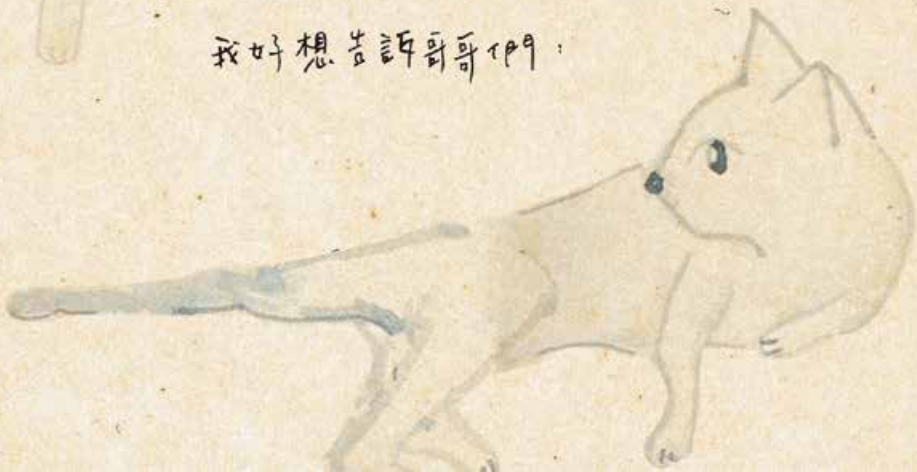 我好想告訴哥哥們：